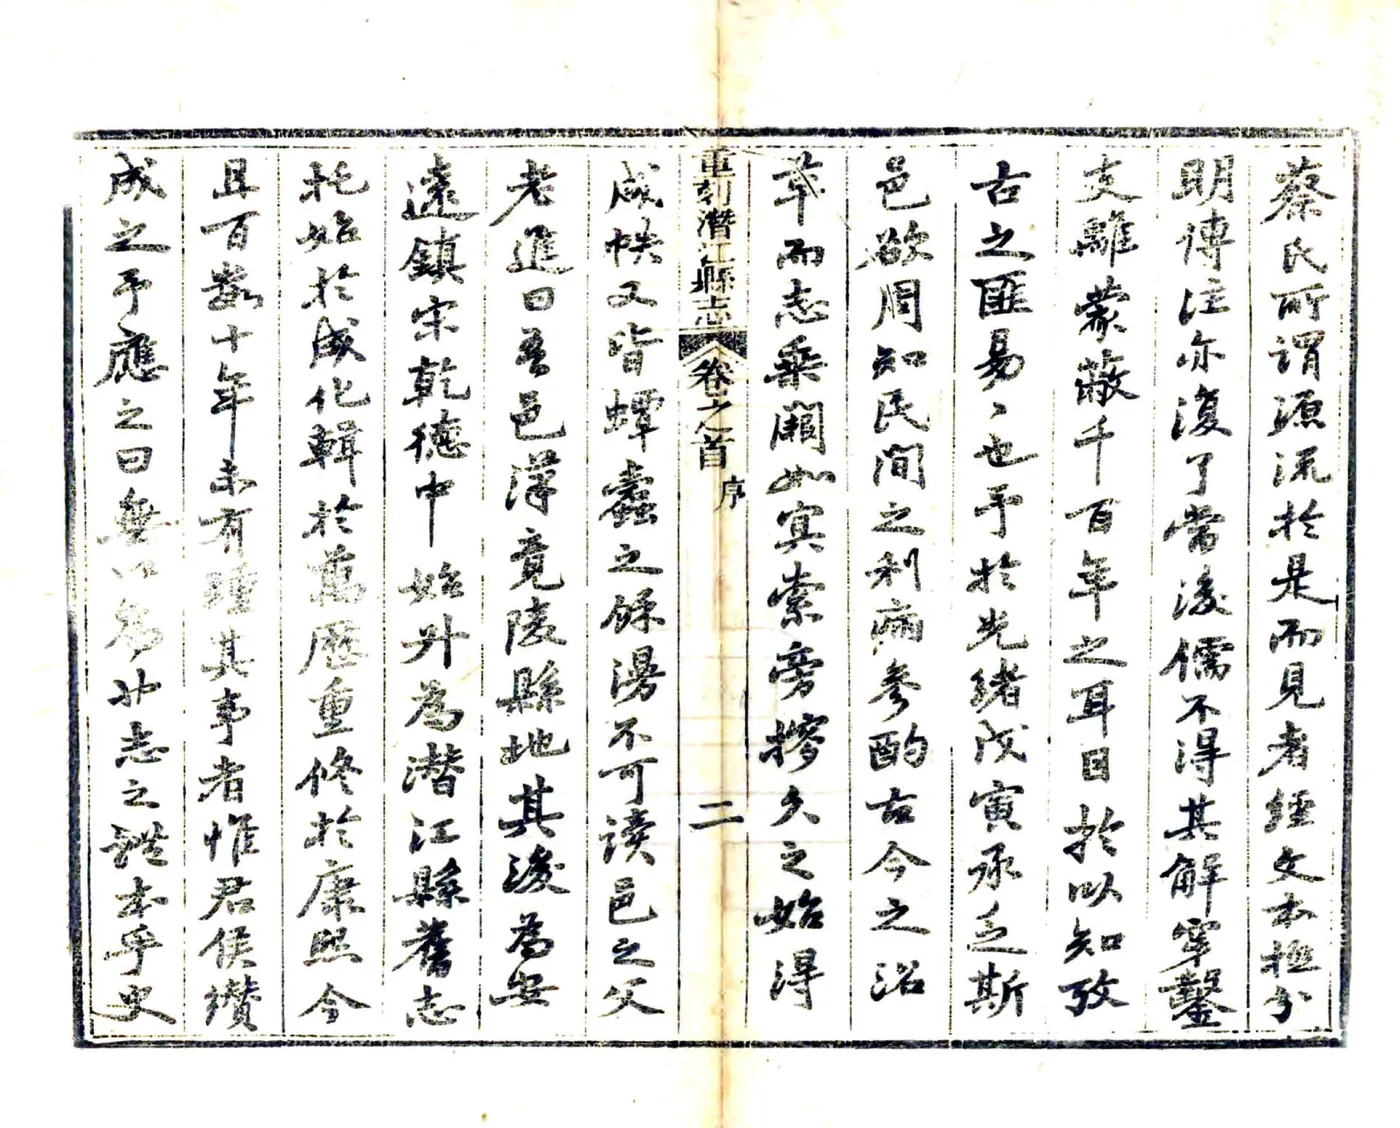 蔡氏所謂源流於是而見者經文本極分
明傳注亦復了當後儒不得其解穿鑿
支離蒙蔽千百年之耳目於以知攷
古之匪易〻也予於光緒戊寅承乏斯
邑欲周知民間之利病參酌古今之沿
革而志乘闕如冥索旁搜久之始得
重刻潛江縣志
卷之首
序
二
成帙又皆蟫蠹之餘漫不可讀邑之父
老進曰吾邑漢竟陵縣地其後為安
遠鎮宋乾德中始升為潛江縣舊志
托始於成化輯於萬歷重修於康熙今
且百數十年未有踵其事者惟君侯纘
成之予應之曰無以為也志之體本乎史